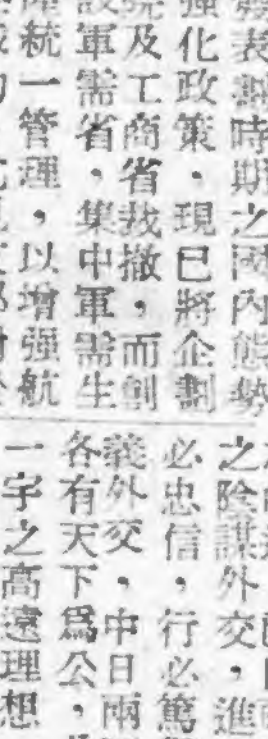 表時期之國內態勢
強化政策，現已將企劃
及工商省裁撤，而創
設軍需省，集中軍需生
統一管理，以增强航
之陰謀外交，進
必忠信，行必篤
義外交，中日兩
各有天下爲公，
一字之高遠理想